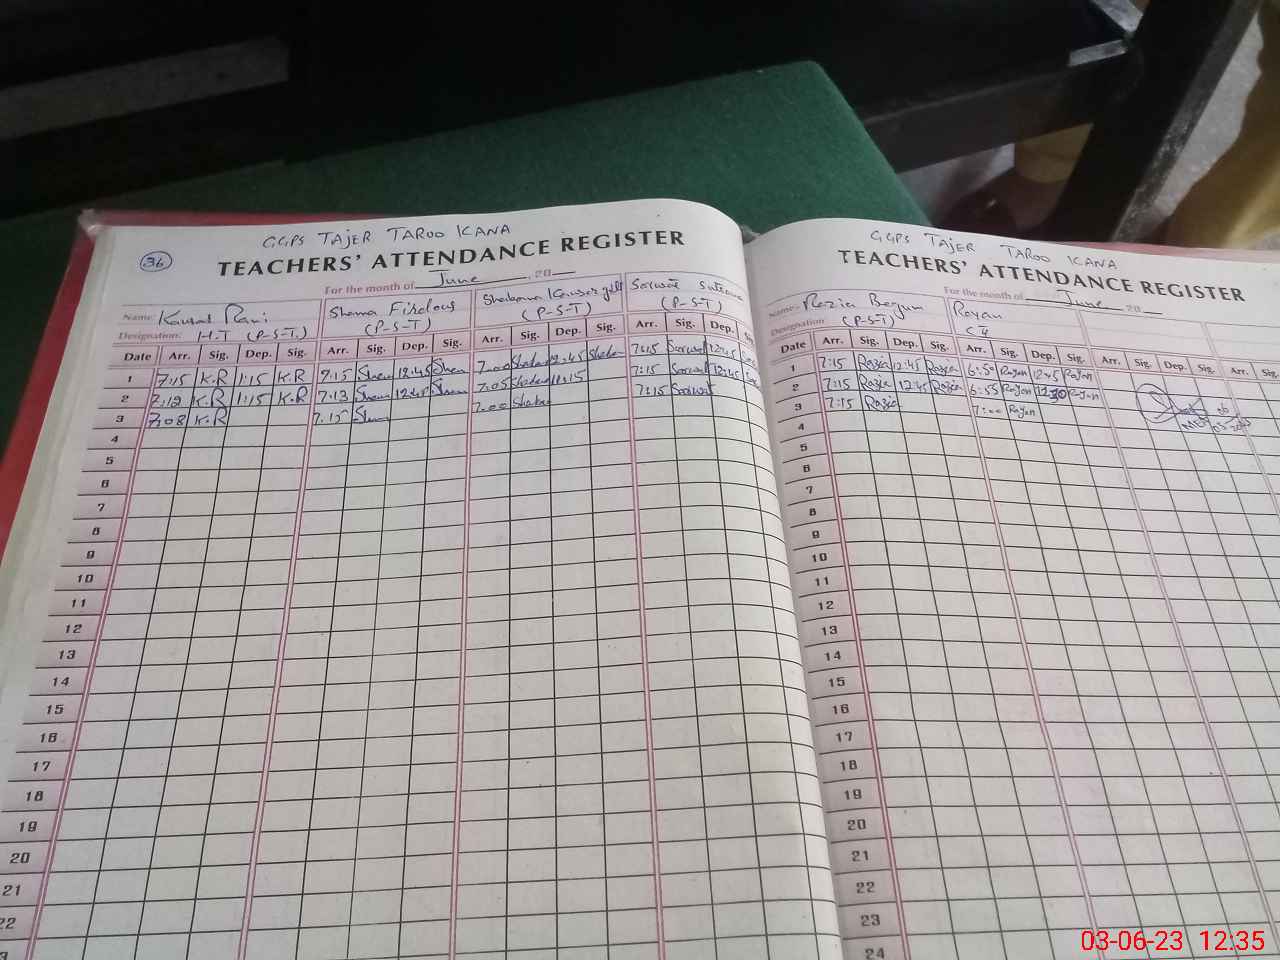 36
GGPS TAJER TAROO KANA
TEACHERS' ATTENDANCE REGISTER
For the month of June, 20
Name: Kausar Rani
Designation: H.T (P-S-T.)
Shama Firdous
(P-S-T)
Shabana Kausar
(P-S-T)
Sarwat
(P-S-T)
Date Arr. Sig. Dep. Sig. Arr. Sig. Dep. Sig. Arr. Sig. Dep. Sig. Arr. Sig. Dep.
1 7:15 K.R 1:15 K.R 7:15 Sham 12:45 Sham 7:00 Shaban 12:45 Shaban 7:15 Sarwat 12:45
2 7:12 K.R 1:15 K.R 7:13 Sham 12:45 Sham 7:05 Shaban 11:15 7:15 Sarwat 12:45
3 7:08 K.R 7:15 Sham 7:00 Shaban 7:15 Sarwat
4
5
6
7
8
9
10
11
12
13
14
15
16
17
18
19
20
21
22
GGPS TAJER TAROO KANA
TEACHERS' ATTENDANCE REGISTER
For the month of June 20
Name: Razia Begum
Designation: (P-S-T)
Rayan
C 4
Date Arr. Sig. Dep. Sig. Arr. Sig. Dep. Sig. Arr. Sig. Dep. Sig. Arr. Sig.
1 7:15 Razia 12:45 Razia 6:50 Rayan 12:45 Rayan
2 7:15 Razia 12:45 Razia 6:55 Rayan 12:30 Rayan
3 7:15 Razia 7:00 Rayan
4
5
6
7
8
9
10
11
12
13
14
15
16
17
18
19
20
21
22
23
24
03-06-23 12:35